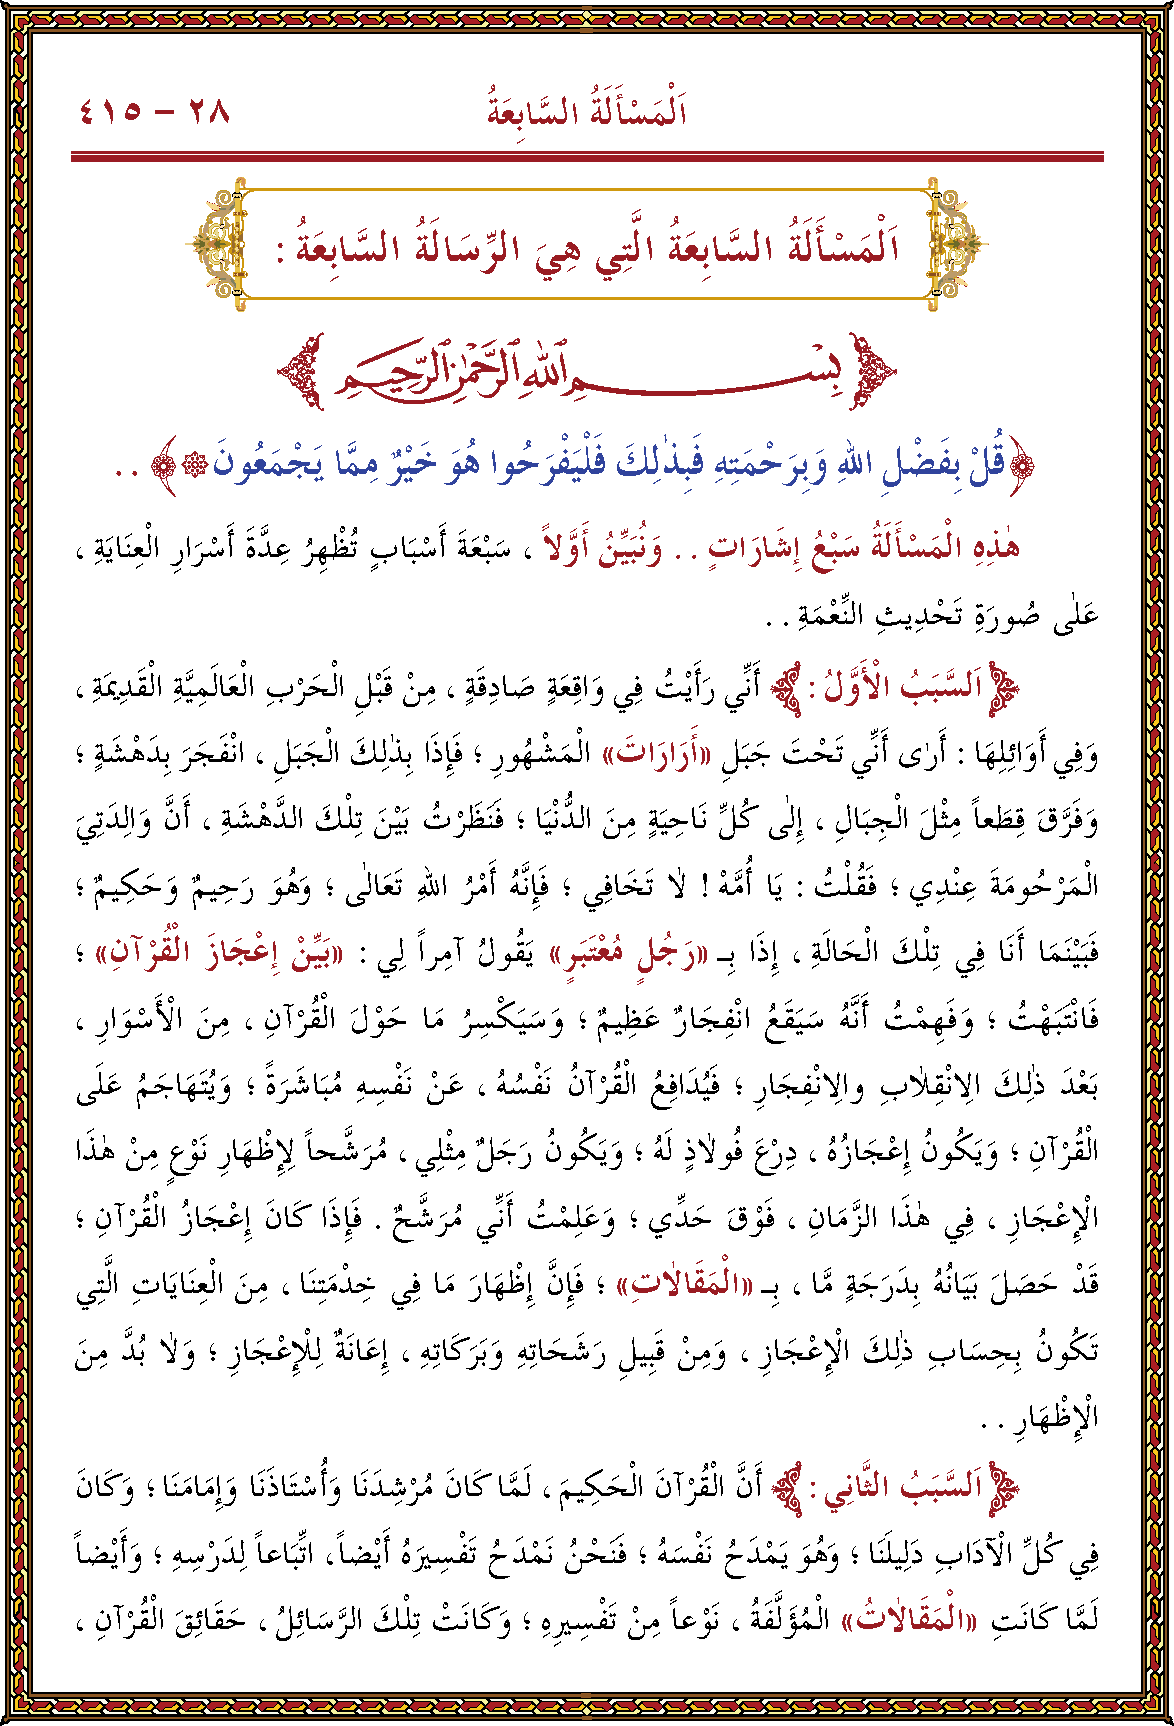 ٢٨ – ٤١٥
اَلْمَسْأَلَةُ السَّابِعَةُ
اَلْمَسْأَلَةُ السَّابِعَةُ الَّتِي هِيَ الرِّسَالَةُ السَّابِعَةُ :
بِسْمِ اللهِ الرَّحْمٰنِ الرَّحِيمِ
﴿قُلْ بِفَضْلِ اللهِ وَبِرَحْمَتِهِ فَبِذٰلِكَ فَلْيَفْرَحُوا هُوَ خَيْرٌ مِمَّا يَجْمَعُونَ۞﴾ . .
هٰذِهِ الْمَسْأَلَةُ سَبْعُ إِشَارَاتٍ . . وَنُبَيِّنُ أَوَّلاً ، سَبْعَةَ أَسْبَابٍ تُظْهِرُ عِدَّةَ أَسْرَارِ الْعِنَايَةِ ،
عَلٰى صُورَةِ تَحْدِيثِ النِّعْمَةِ . .
﴿اَلسَّبَبُ الْأَوَّلُ :﴾ أَنِّي رَأَيْتُ فِي وَاقِعَةٍ صَادِقَةٍ ، مِنْ قَبْلِ الْحَرْبِ الْعَالَمِيَّةِ الْقَدِيمَةِ ،
وَفِي أَوَائِلِهَا : أَرٰى أَنِّي تَحْتَ جَبَلِ «أَرَارَاتَ» الْمَشْهُورِ ؛ فَإِذَا بِذٰلِكَ الْجَبَلِ ، انْفَجَرَ بِدَهْشَةٍ ؛
وَفَرَّقَ قِطَعاً مِثْلَ الْجِبَالِ ، إِلٰى كُلِّ نَاحِيَةٍ مِنَ الدُّنْيَا ؛ فَنَظَرْتُ بَيْنَ تِلْكَ الدَّهْشَةِ ، أَنَّ وَالِدَتِيَ
الْمَرْحُومَةَ عِنْدِي ؛ فَقُلْتُ : يَا أُمَّهْ ! لاٰ تَخَافِي ؛ فَإِنَّهُ أَمْرُ اللهِ تَعَالٰى ؛ وَهُوَ رَحِيمٌ وَحَكِيمٌ ؛
فَبَيْنَمَا أَنَا فِي تِلْكَ الْحَالَةِ ، إِذَا بِـ «رَجُلٍ مُعْتَبَرٍ» يَقُولُ آمِراً لِي : «بَيِّنْ إِعْجَازَ الْقُرْآنِ» ؛
فَانْتَبَهْتُ ؛ وَفَهِمْتُ أَنَّهُ سَيَقَعُ انْفِجَارٌ عَظِيمٌ ؛ وَسَيَكْسِرُ مَا حَوْلَ الْقُرْآنِ ، مِنَ الْأَسْوَارِ ،
بَعْدَ ذٰلِكَ الِانْقِلاٰبِ والِانْفِجَارِ ؛ فَيُدَافِعُ الْقُرْآنُ نَفْسُهُ ، عَنْ نَفْسِهِ مُبَاشَرَةً ؛ وَيُتَهَاجَمُ عَلَى
الْقُرْآنِ ؛ وَيَكُونُ إِعْجَازُهُ ، دِرْعَ فُولاٰذٍ لَهُ ؛ وَيَكُونُ رَجَلٌ مِثْلِي ، مُرَشَّحاً لِإِظْهَارِ نَوْعٍ مِنْ هٰذَا
الْإِعْجَازِ ، فِي هٰذَا الزَّمَانِ ، فَوْقَ حَدِّي ؛ وَعَلِمْتُ أَنِّي مُرَشَّحٌ . فَإِذَا كَانَ إِعْجَازُ الْقُرْآنِ ؛
قَدْ حَصَلَ بَيَانُهُ بِدَرَجَةٍ مَّا ، بِـ «الْمَقَالاٰتِ» ؛ فَإِنَّ إِظْهَارَ مَا فِي خِدْمَتِنَا ، مِنَ الْعِنَايَاتِ الَّتِي
تَكُونُ بِحِسَابِ ذٰلِكَ الْإِعْجَازِ ، وَمِنْ قَبِيلِ رَشَحَاتِهِ وَبَرَكَاتِهِ ، إِعَانَةٌ لِلْإِعْجَازِ ؛ وَلاٰ بُدَّ مِنَ
الْإِظْهَارِ . .
﴿اَلسَّبَبُ الثَّانِي :﴾ أَنَّ الْقُرْآنَ الْحَكِيمَ ، لَمَّا كَانَ مُرْشِدَنَا وَأُسْتَاذَنَا وَإِمَامَنَا ؛ وَكَانَ
فِي كُلِّ الْآدَابِ دَلِيلَنَا ؛ وَهُوَ يَمْدَحُ نَفْسَهُ ؛ فَنَحْنُ نَمْدَحُ تَفْسِيرَهُ أَيْضاً ، اتِّبَاعاً لِدَرْسِهِ ؛ وَأَيْضاً
لَمَّا كَانَتِ «الْمَقَالاٰتُ» الْمُؤَلَّفَةُ ، نَوْعاً مِنْ تَفْسِيرِهِ ؛ وَكَانَتْ تِلْكَ الرَّسَائِلُ ، حَقَائِقَ الْقُرْآنِ ،